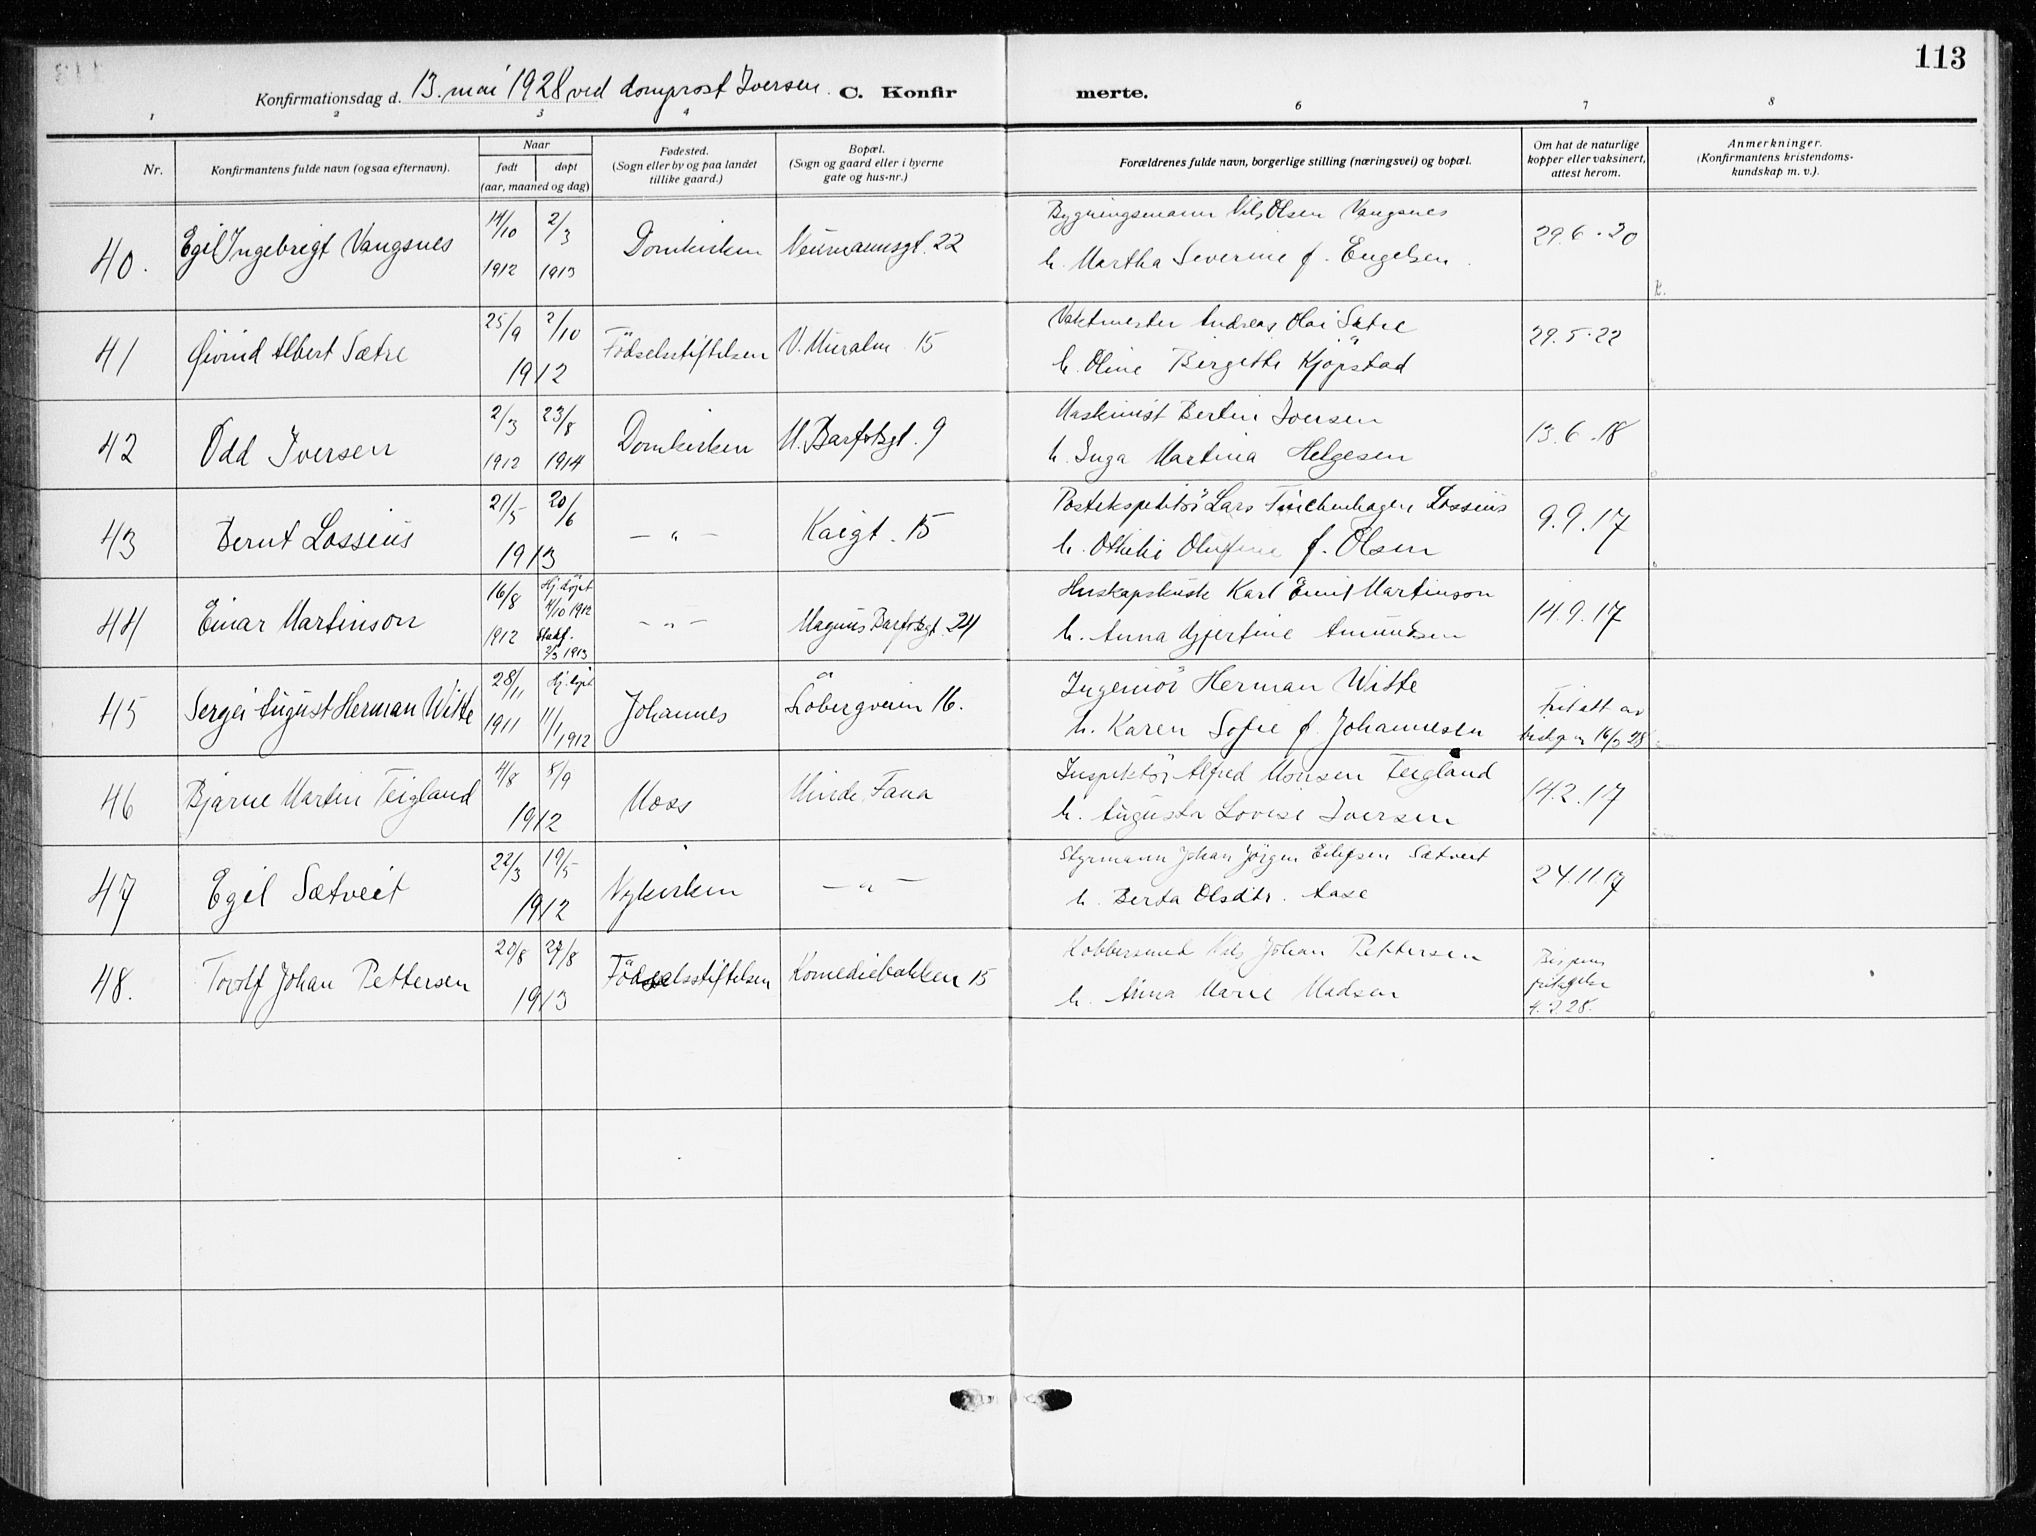 113
Konfirmationsdag d. 13. mai 1928 ved domprost Iversen. C. Konfirmerte.
1 2 3 4 6 7 8
Nr. Konfirmantens fulde navn (ogsaa efternavn). Naar født døpt (aar, maaned og dag) Fødested. (Sogn eller by og paa landet tillike gaard.) Bopæl. (Sogn og gaard eller i byerne gate og hus-nr.) Forældrenes fulde navn, borgerlige stilling (næringsvei) og bopæl. Om hat de naturlige kopper eller vaksinert, attest herom. Anmerkninger. (Konfirmantens kristendomskundskap m. v.).
40. Egil Ingebrigt Vangsnes 14/10 1912 2/3 1913 Domkirken Neumannsgt. 22 Bygningsmann Nils Olsen Vangsnes
h. Martha Severine f. Engelsen. 29.6.20
41 Øivind Albert Sætre 25/9 2/10 1912 Födselsstiftelsen V. Muralm. 15 Vaktmester Andreas Olai Sætre
h. Oline Birgitte Kjöpstad 29.5.22
42 Odd Iversen 2/3 1912 23/8 1914 Domkirken M. Barfotsgt. 9 Maskinist Bertin Iversen
h. Inga Martina Helgesen 13.6.18
43 Bernt Lossius 21/5 20/6 1913 — " — Kaigt. 15 Postekspeditör Lars Finckenhagen Lossius
h. Othilie Olufine f. Olsen 9.9.17
44 Einar Martinson 16/8 1912 Hj. döpt 4/10 1912 Stadf. 2/3 1913 — " — Magnus Barfotsgt. 24 Karl Emil Martinson
h. Anna Gjertine Amundsen 14.9.17
45 Sergei August Herman Witte 28/11 1911 Hj. döpt 11/1 1912 Johannes Löbergveien 16. Ingeniör Herman Witte
h. Karen Sofie f. Johannesen Fritatt av 16/3 28
46 Bjarne Martin Teigland 4/8 8/9 1912 Moss Minde, Fana Inspektör Alfred Monsen Teigland
h. Augusta Lovise Iversen 14.2.17
47 Egil Sætveit 22/3 19/5 1912 Nykirken — " — Styrmann Johan Jörgen Eilifsen Sætveit
h. Berta Olsdtr. Aase 24.11.17
48. Torolf Johan Pettersen 20/8 27/8 1913 Födselsstiftelsen Komediebakken 15 Kobbersmed Nils Johan Pettersen
h. Anna Marie Madsen Bispens 4.3.28.